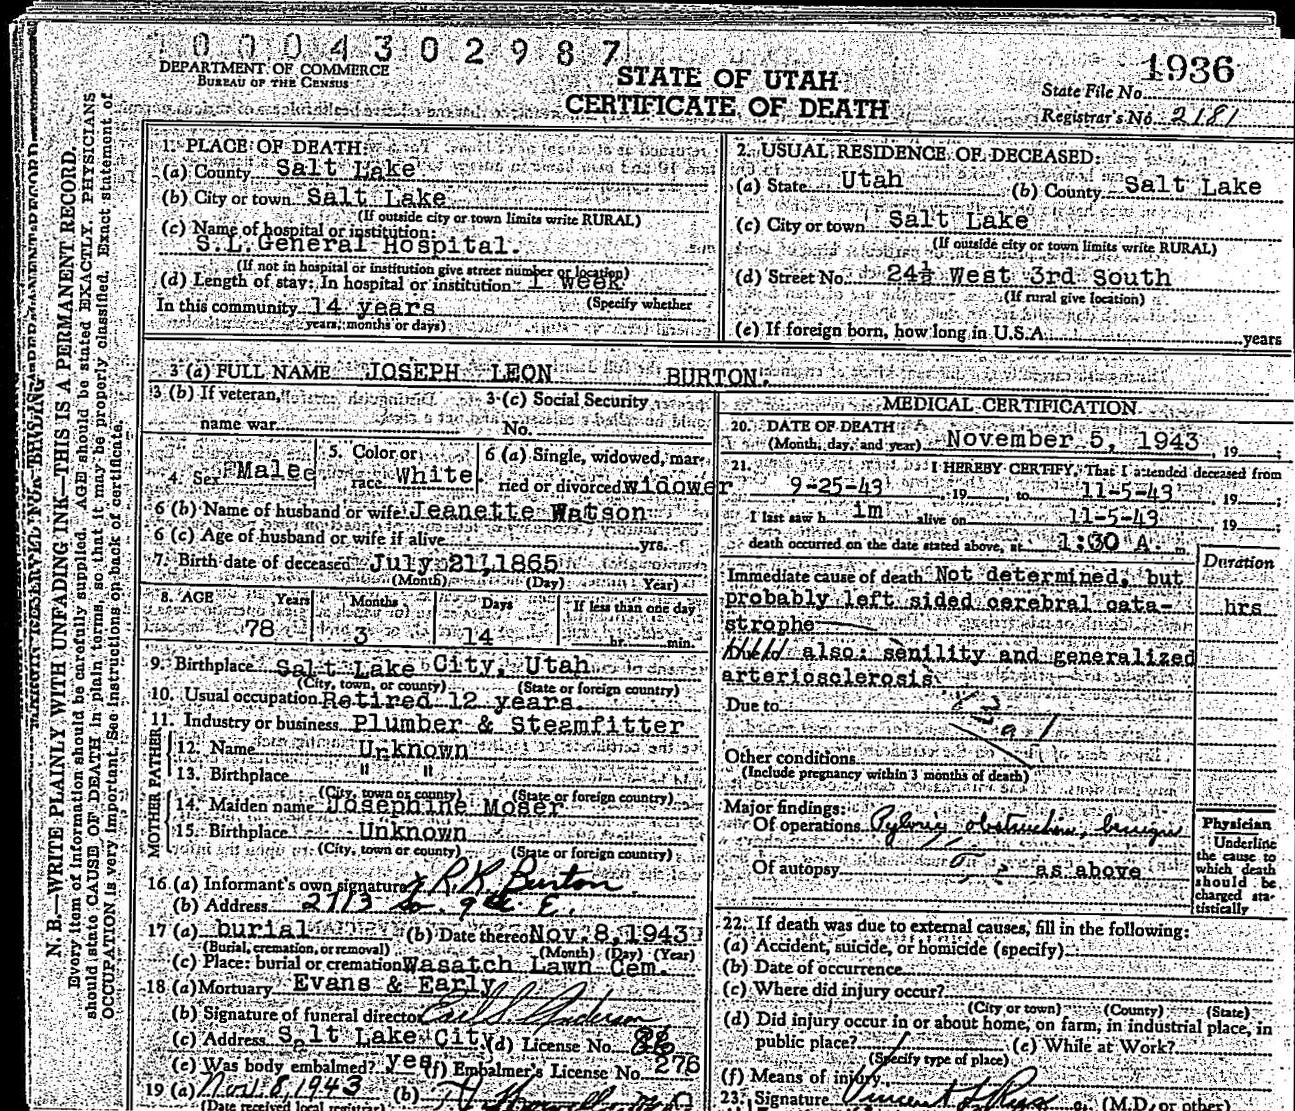 0004302987
DEPARTMENT OF COMMERCE
BUREAU OF THE CENSUS
STATE OF UTAH
CERTIFICATE OF DEATH
1936
State File No.
Registrar's No. 2181
N. B.—WRITE PLAINLY WITH UNFADING INK—THIS IS A PERMANENT RECORD.
Every item of information should be carefully supplied. AGE should be stated EXACTLY. PHYSICIANS
should state CAUSE OF DEATH in plain terms, so that it may be properly classified. Exact statement of
OCCUPATION is very important. See instructions on back of certificate.
1. PLACE OF DEATH:
(a) County Salt Lake
(b) City or town Salt Lake
(If outside city or town limits write RURAL)
(c) Name of hospital or institution:
S.L. General Hospital.
(If not in hospital or institution give street number or location)
(d) Length of stay: In hospital or institution 1 week
In this community 14 years (Specify whether
years, months or days)
2. USUAL RESIDENCE OF DECEASED:
(a) State Utah (b) County Salt Lake
(c) City or town Salt Lake
(If outside city or town limits write RURAL)
(d) Street No. 24½ West 3rd South
(If rural give location)
(e) If foreign born, how long in U.S.A. years
3 (a) FULL NAME JOSEPH LEON BURTON.
3 (b) If veteran,
name war
3 (c) Social Security
No.
4. Sex Male
5. Color or
race White
6 (a) Single, widowed, mar-
ried or divorced widower
6 (b) Name of husband or wife Jeanette Watson
6 (c) Age of husband or wife if alive yrs.
7. Birth date of deceased July 21, 1865
(Month) (Day) Year)
8. AGE Years Months Days If less than one day
78 3 14 hr. min.
9. Birthplace Salt Lake City, Utah
(City, town, or county) (State or foreign country)
10. Usual occupation Retired 12 years.
11. Industry or business Plumber & Steamfitter
FATHER
12. Name Unknown
13. Birthplace " "
(City, town or county) (State or foreign country)
MOTHER
14. Maiden name Josephine Moser
15. Birthplace Unknown
(City, town or county) (State or foreign country)
16 (a) Informant's own signature R.R. Burton
(b) Address 2713 So. 9th E.
17 (a) burial (b) Date thereof Nov. 8, 1943
(Burial, cremation, or removal) (Month) (Day) (Year)
(c) Place: burial or cremation Wasatch Lawn Cem.
18 (a) Mortuary Evans & Early
(b) Signature of funeral director Anderson
(c) Address Salt Lake City (d) License No.
(e) Was body embalmed? yes (f) Embalmer's License No. 276
19 (a) Nov. 8, 1943 (b)
(Date received local registrar)
MEDICAL CERTIFICATION
20. DATE OF DEATH
(Month, day, and year) November 5, 1943, 19 ;
21. I HEREBY CERTIFY, That I attended deceased from
9-25-43, 19 , to 11-5-43, 19 ;
I last saw h im alive on 11-5-43, 19 ;
death occurred on the date stated above, at 1:30 A. m.
Duration
Immediate cause of death Not determined, but
probably left sided cerebral cata- hrs
strophe
also: senility and generalized
arteriosclerosis.
Due to
Other conditions
(Include pregnancy within 3 months of death)
Major findings:
Of operations Pyloric obstruction, benign
Of autopsy as above
Physician
Underline
the cause to
which death
should be
charged sta-
tistically
22. If death was due to external causes, fill in the following:
(a) Accident, suicide, or homicide (specify)
(b) Date of occurrence
(c) Where did injury occur?
(City or town) (County) (State)
(d) Did injury occur in or about home, on farm, in industrial place, in
public place? (e) While at Work?
(Specify type of place)
(f) Means of injury
23. Signature Vincent L. Rees (M.D. or other)